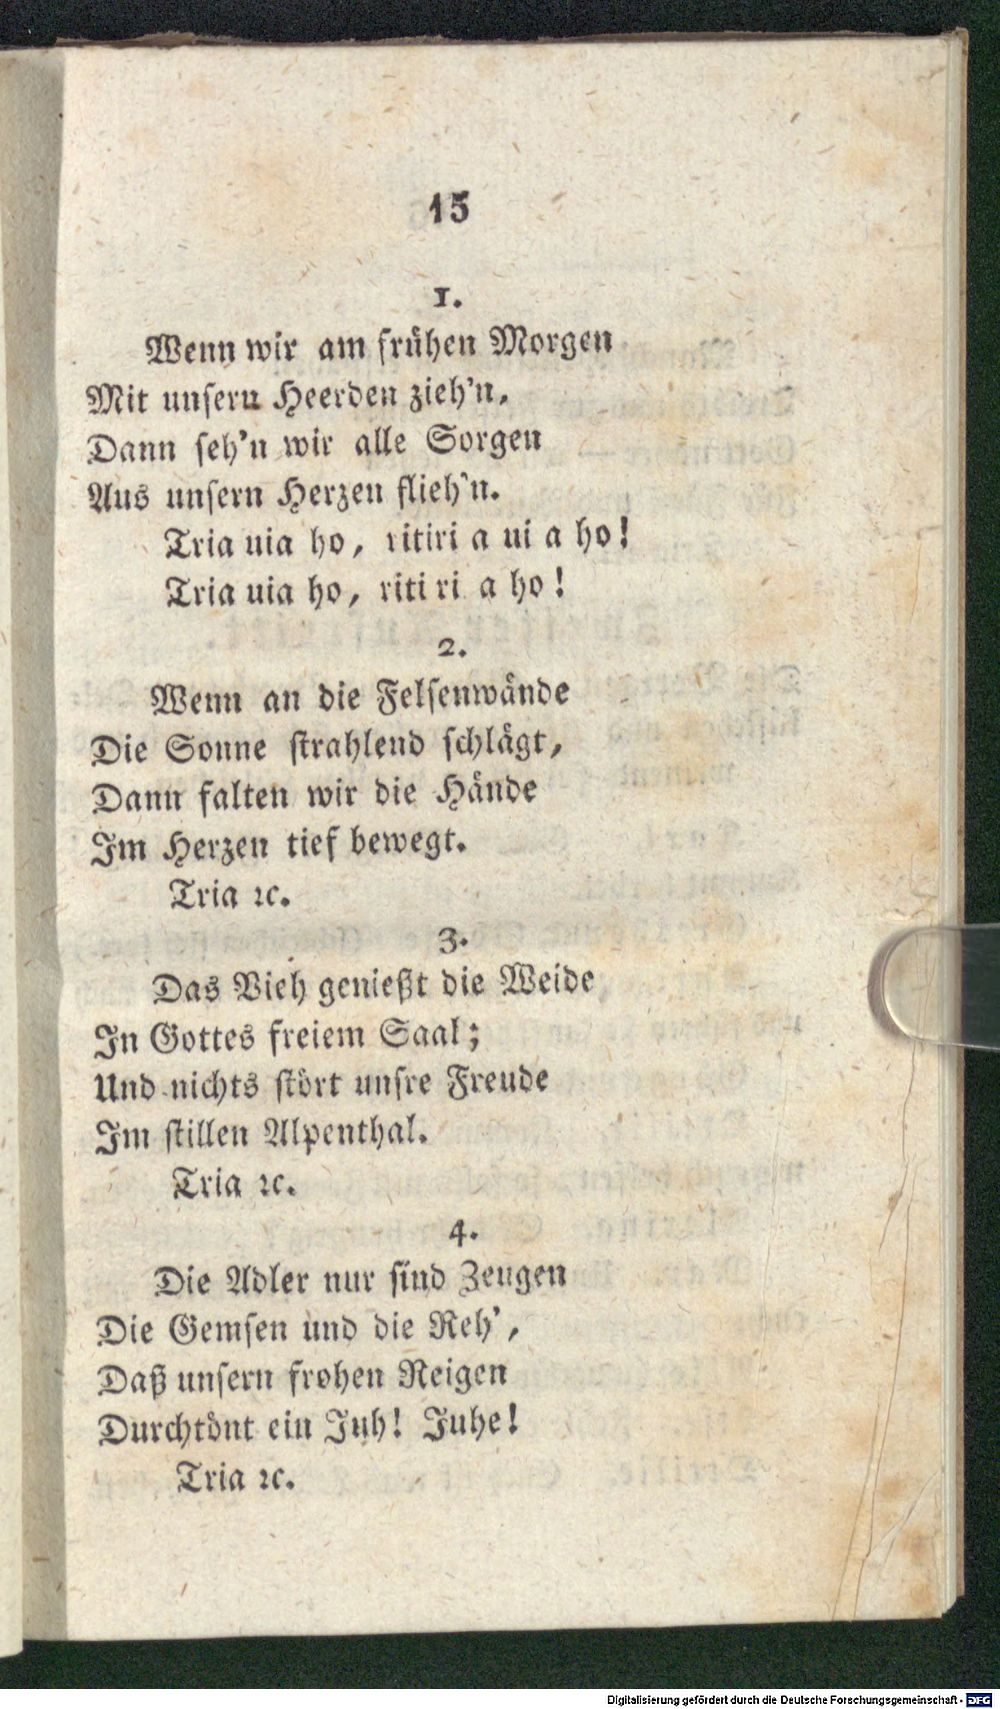 15
1.
Wenn wir am frühen Morgen
Mit unsern Heerden zieh'n,
Dann seh'n wir alle Sorgen
Aus unsern Herzen flieh'n.
Tria uia ho, ritiri a ui a ho!
Tria uia ho, riti ri a ho!
2.
Wenn an die Felsenwände
Die Sonne strahlend schlägt,
Dann falten wir die Hände
Im Herzen tief bewegt.
Tria ꝛc.
3.
Das Vieh genießt die Weide
In Gottes freiem Saal;
Und nichts stört unsre Freude
Im stillen Alpenthal.
Tria ꝛc.
4.
Die Adler nur sind Zeugen
Die Gemsen und die Reh',
Daß unsern frohen Reigen
Durchtönt ein Juh! Juhe!
Tria ꝛc.
Digitalisierung gefördert durch die Deutsche Forschungsgemeinschaft - DFG